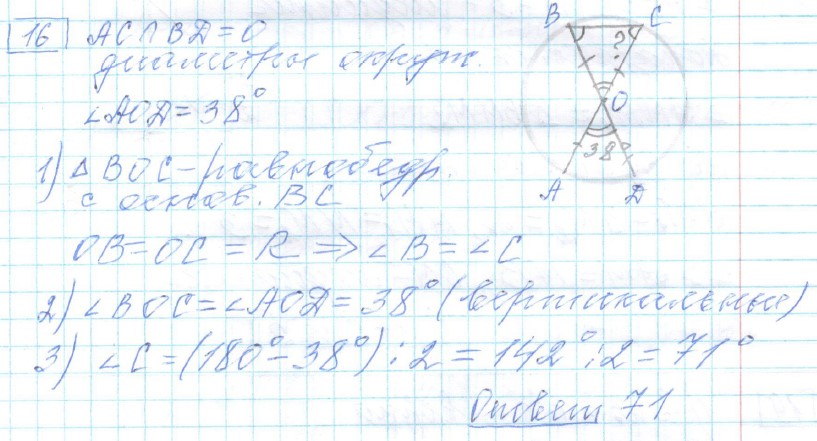 16 AC∩BD=O
диаметры окруж.
∠AOD=38°
1) △BOC-равнобедр.
с основ. BC
OB=OC=R⇒∠B=∠C
2) ∠BOC=∠AOD=38° (вертикальные)
3) ∠C=(180°-38°):2=142°:2=71°
Ответ 71
B C
?
O
38°
A D